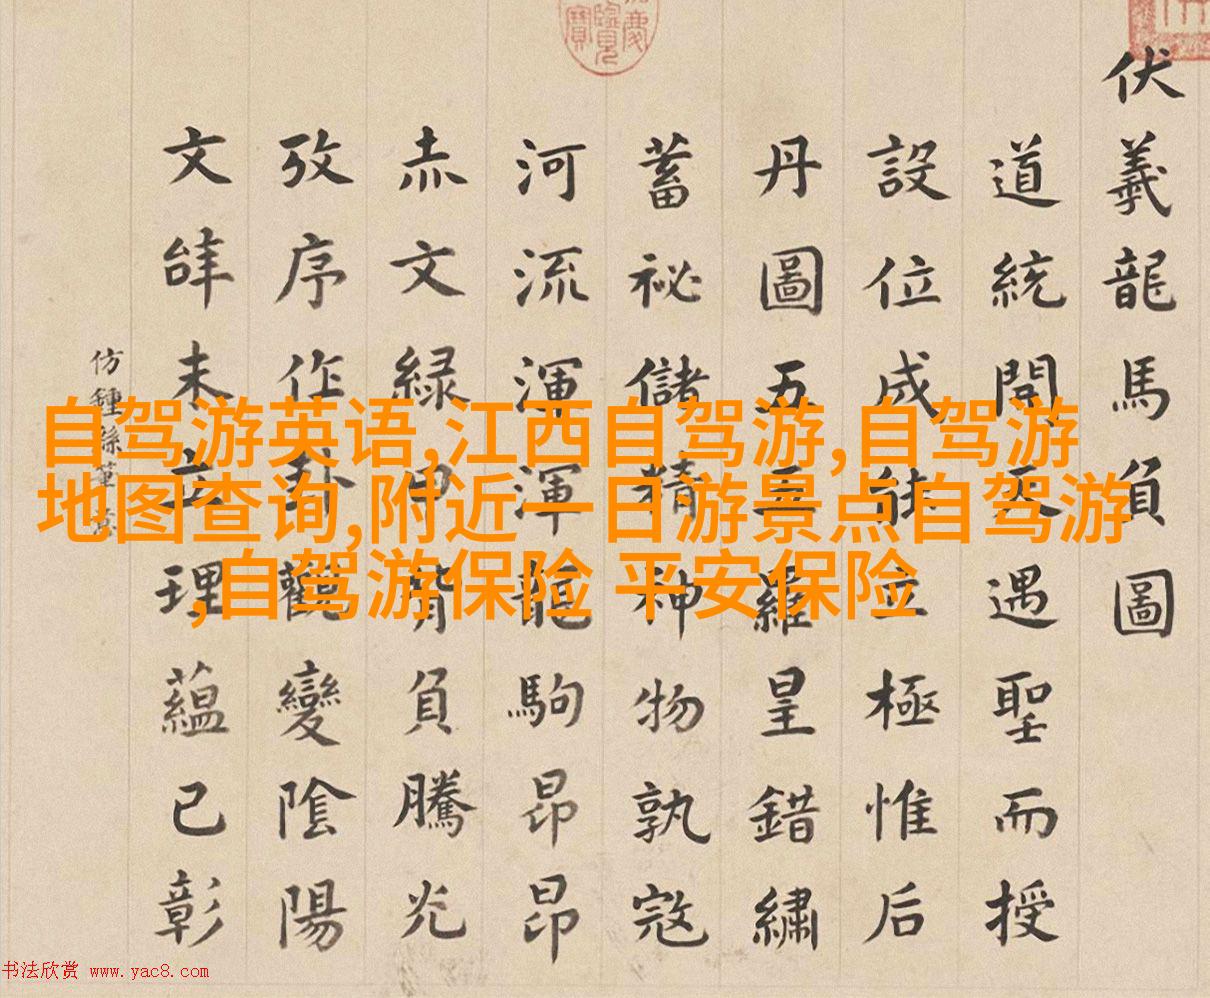 自驾游英语,江西自驾游,自驾游
地图查询,附近一日游景点自驾游
,自驾游保险 平安保险
伏羲龍馬負圖
道統開天遇聖而授
設位成能立極惟后
丹圖五三羅星錯繡
蓄祕儲精神物孰寇
河流渾渾龍駒昂昂
赤文緑甲背負騰光
攷序作卦觀變陰陽
文未立理蘊已彰
仿鍾繇
书法欣赏 www.yac8.com